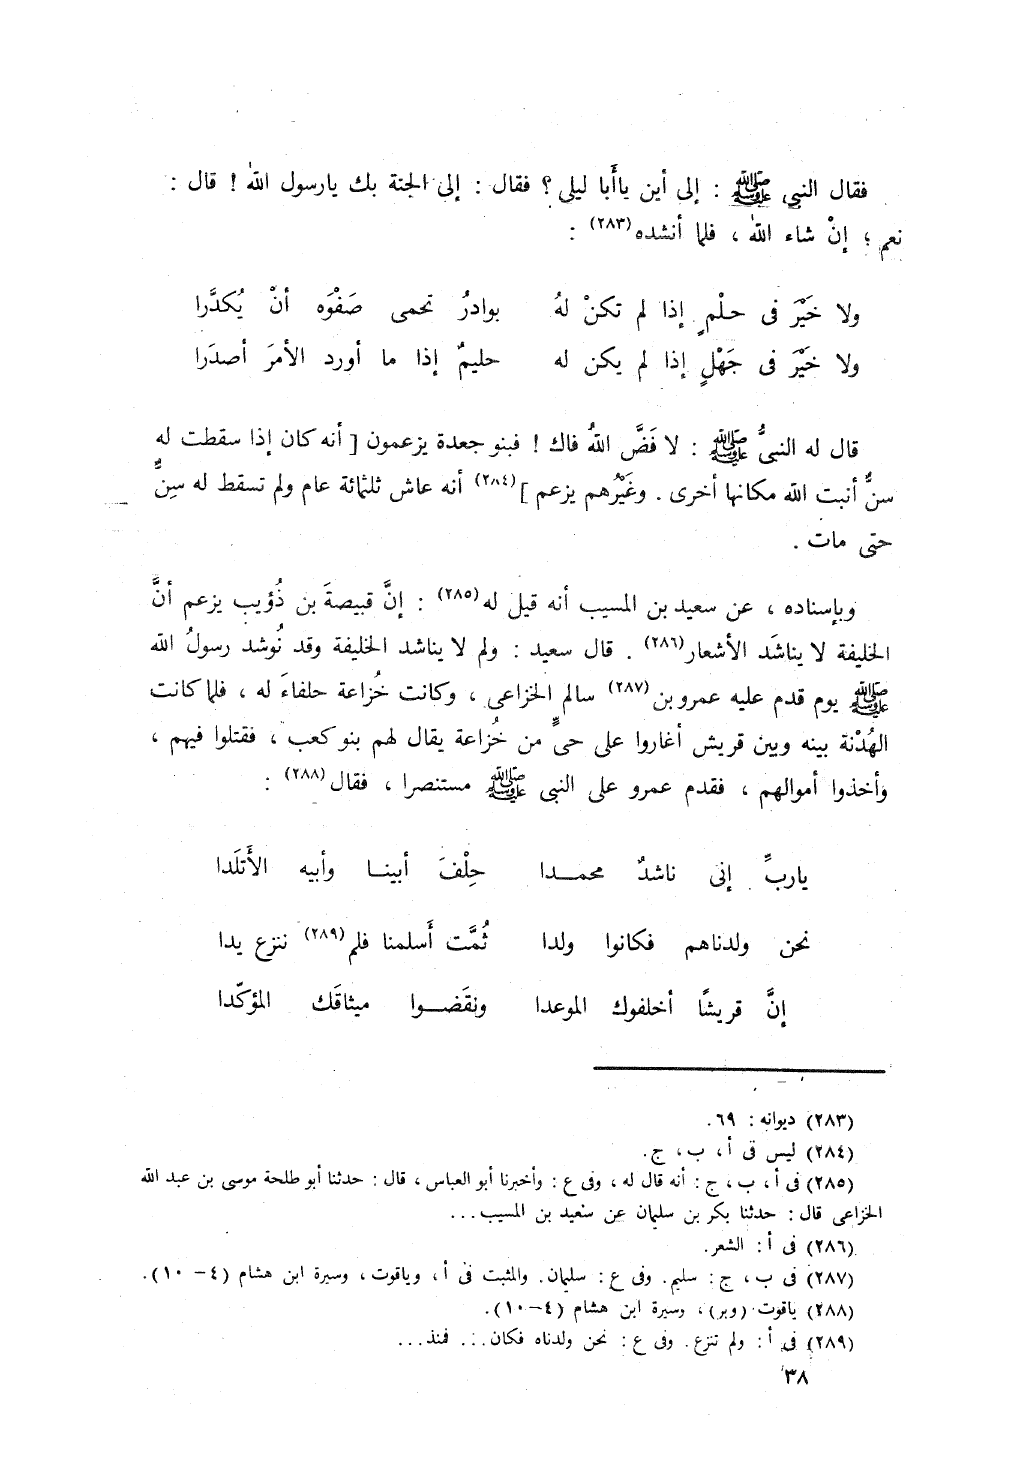 فقال النبي ﷺ : إلى أين ياأَبا ليلى ؟ فقال : إلى الجنة بك يارسول اللهُ ! قال :
نعم ؛ إنْ شاء اللهُ ، فلما أنشده(٢٨٣) :
ولا خَيْرَ فى حلْمٍ إذا لم تكنْ لهُ بوادرُ تحمى صَفْوَه أنْ يُكدَّرا
ولا خَيْرَ فى جَهْلٍ إذا لم يكن له حليمٌ إذا ما أورد الأمرَ أصدَرا
قال له النبىُّ ﷺ : لا فَضَّ اللهُ فاك ! فبنو جعدة يزعمون [ أنه كان إذا سقطت له
سنٌّ أنبت الله مكانها أخرى . وغَيْرُهم يزعم ](٢٨٤) أنه عاش ثلثمائة عام ولم تسقط له سِنٌّ
حتى مات .
وبإسناده ، عن سعيد بن المسيب أنه قيل له(٢٨٥) : إنَّ قبيصةَ بن ذُؤيب يزعم أنَّ
الخليفة لا يناشَد الأشعار(٢٨٦) . قال سعيد : ولم لا يناشد الخليفة وقد نُوشد رسولُ الله
ﷺ يوم قدم عليه عمرو بن(٢٨٧) سالم الخزاعى ، وكانت خُزاعة حلفاءَ له ، فلما كانت
الهُدْنة بينه وبين قريش أغاروا على حىٍّ من خُزاعة يقال لهم بنو كعب ، فقتلوا فيهم ،
وأخذوا أموالهم ، فقدم عمرو على النبى ﷺ مستنصرا ، فقال(٢٨٨) :
ياربِّ إنى ناشدٌ محمدا حِلْفَ أبينا وأبيه الأَتلَدا
نحن ولدناهم فكانوا ولدا ثُمَّت أَسلمنا فلم(٢٨٩) ننزع يدا
إنَّ قريشًا أخلفوك الموعدا ونقَضوا ميثاقَك المؤكّدا
(٢٨٣) ديوانه : ٦٩.
(٢٨٤) ليس فى أ ، ب ، ج.
(٢٨٥) فى أ ، ب ، ج : أنه قال له ، وفى ع : وأخبرنا أبو العباس ، قال : حدثنا أبو طلحة موسى بن عبد الله
الخزاعى قال : حدثنا بكر بن سليمان عن سعيد بن المسيب...
(٢٨٦) فى أ : الشعر.
(٢٨٧) فى ب ، ج : سليم. وفى ع : سليمان. والمثبت فى أ ، وياقوت ، وسيرة ابن هشام (٤ - ١٠).
(٢٨٨) ياقوت (وبر) ، وسيرة ابن هشام (٤-١٠).
(٢٨٩) فى أ : ولم تنزع. وفى ع : نحن ولدناه فكان... فمنذ...
٣٨